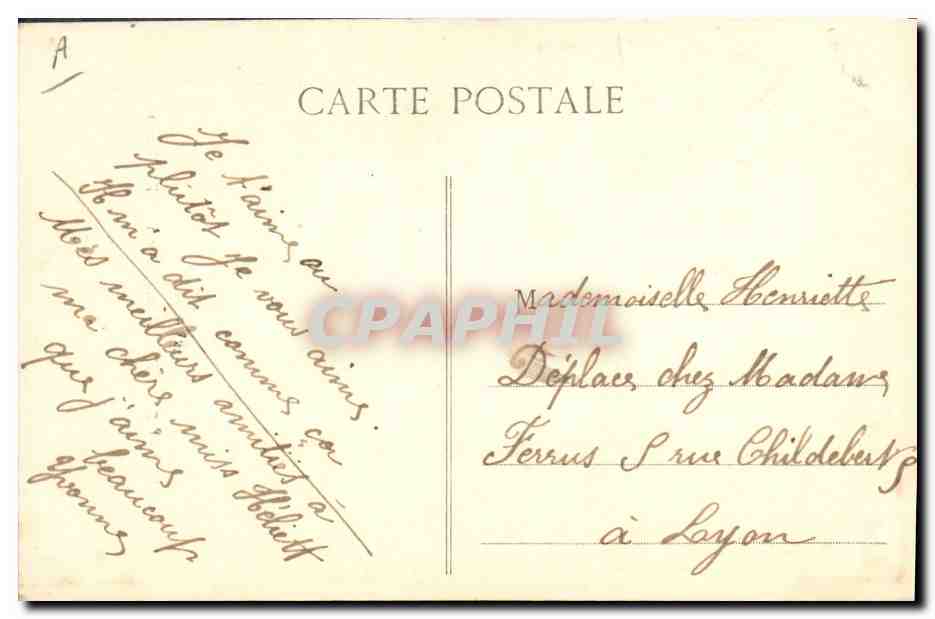 A
CARTE POSTALE
Je t'aime, ou
plutôt Je vous aime.
Il m'a dit comme ça
Mes meilleurs amitiés à
ma chère miss Héliett
que j'aime beaucoup
Yvonne
Mademoiselle Henriette
Déplace chez Madame
Ferrus 5 rue Childebert
à Lyon
CPAPHIL